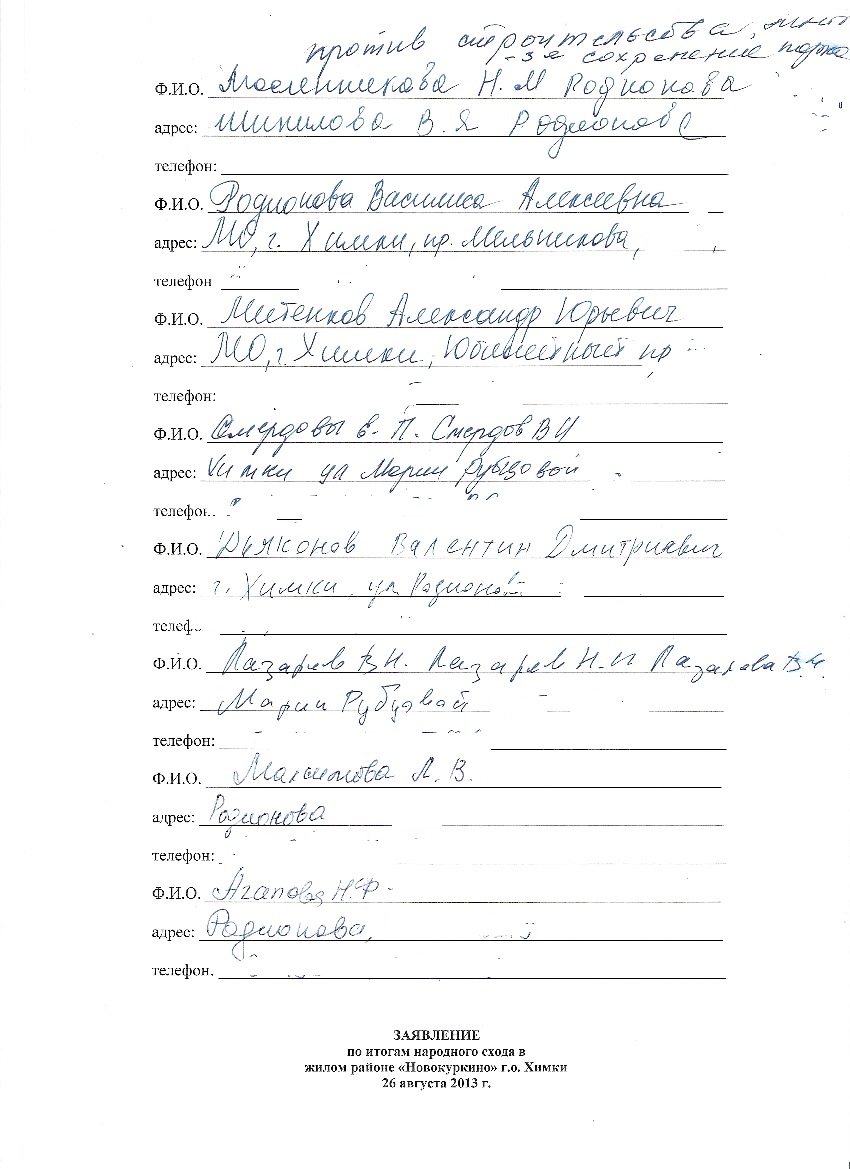 против строительства,
- за сохранение парка
Ф.И.О. Масленникова Н.М Родионова
адрес: Шипилова В.Я Родионова
телефон:
Ф.И.О. Родионова Василиса Алексеевна
адрес: МО, г. Химки, пр. Мельникова,
телефон
Ф.И.О. Митенков Александр Юрьевич
адрес: МО, г. Химки, Юбилейный пр
телефон:
Ф.И.О. Смердовы В. П. Смердов В И
адрес: Химки ул Марии Рубцовой
телефон.
Ф.И.О. Дьяконов Валентин Дмитриевич
адрес: г. Химки ул Родионова
телеф..
Ф.И.О. Лазарев В Н. Лазарев Н.И Лазарева В.Н.
адрес: Марии Рубцовай
телефон:
Ф.И.О. Максимова Л. В.
адрес: Родионова
телефон:
Ф.И.О. Агапова Н.Ф
адрес: Родионова,
телефон.
ЗАЯВЛЕНИЕ
по итогам народного схода в
жилом районе «Новокуркино» г.о. Химки
26 августа 2013 г.